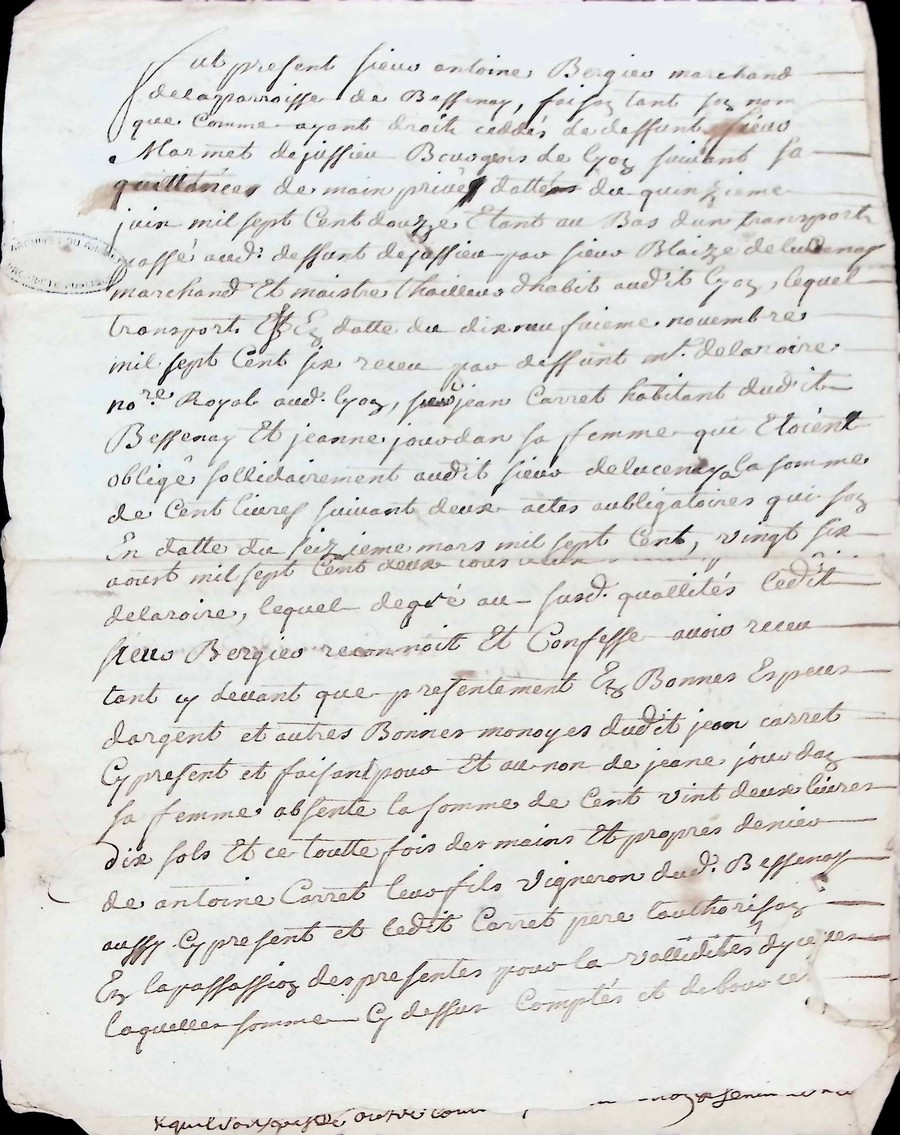 ARCHIVES DU RHÔNE
Fut present sieur antoine Bergier marchand
delapparroisse de Bessenay, faisaz tant soz nom
que Comme ayant droit ceddés de deffunt sieur
Marmet dejussieu Bourgois de lyoz suivant sa
quittance de main privée dattée du quinzieme
juin mil sept Cent douzze Etant au Bas dun transport
passé aud. deffunt dejussieu par sieur Blaize delucenay
marchand Et maistre thailleur dhabit audit lyoz, lequel
transport Est Ez datte du dixneufvieme novembre
mil sept Cent six receu par deffunt mt. delaroire
nore. Royal aud. lyoz, sieur jean Carret habitant dudit
Bessenay Et jeanne jourdan sa femme qui Etoient
obligé sollidairement audit sieur delucenay a la somme
de Cent livres suivant deux actes aubligatoires qui soz
En datte du seizieme mars mil sept Cent, vingt six
aoust mil sept Cent deux tous
delaroire, lequel degré au susd. quallités ledit
sieur Bergier reconnoit Et Confesse avoir receu
tant cy devant que presentement Ez Bonnes Especes
dargent et autres Bonnes monoyes dudit jean carret
Cy present et faisant pour Et au non de jeane jourdaz
sa femme absente la somme de Cent vint deux livres
dix sols Et ce toutte fois des mains Et propres denier
de antoine Carret leur fils vigneron dud. Bessenay
aussy Cy present et ledit Carret pere lauthorisaz
Ez la passassioz des presentes pour la vallidités dyceles
laquelle somme Cy dessus Comptés et debource